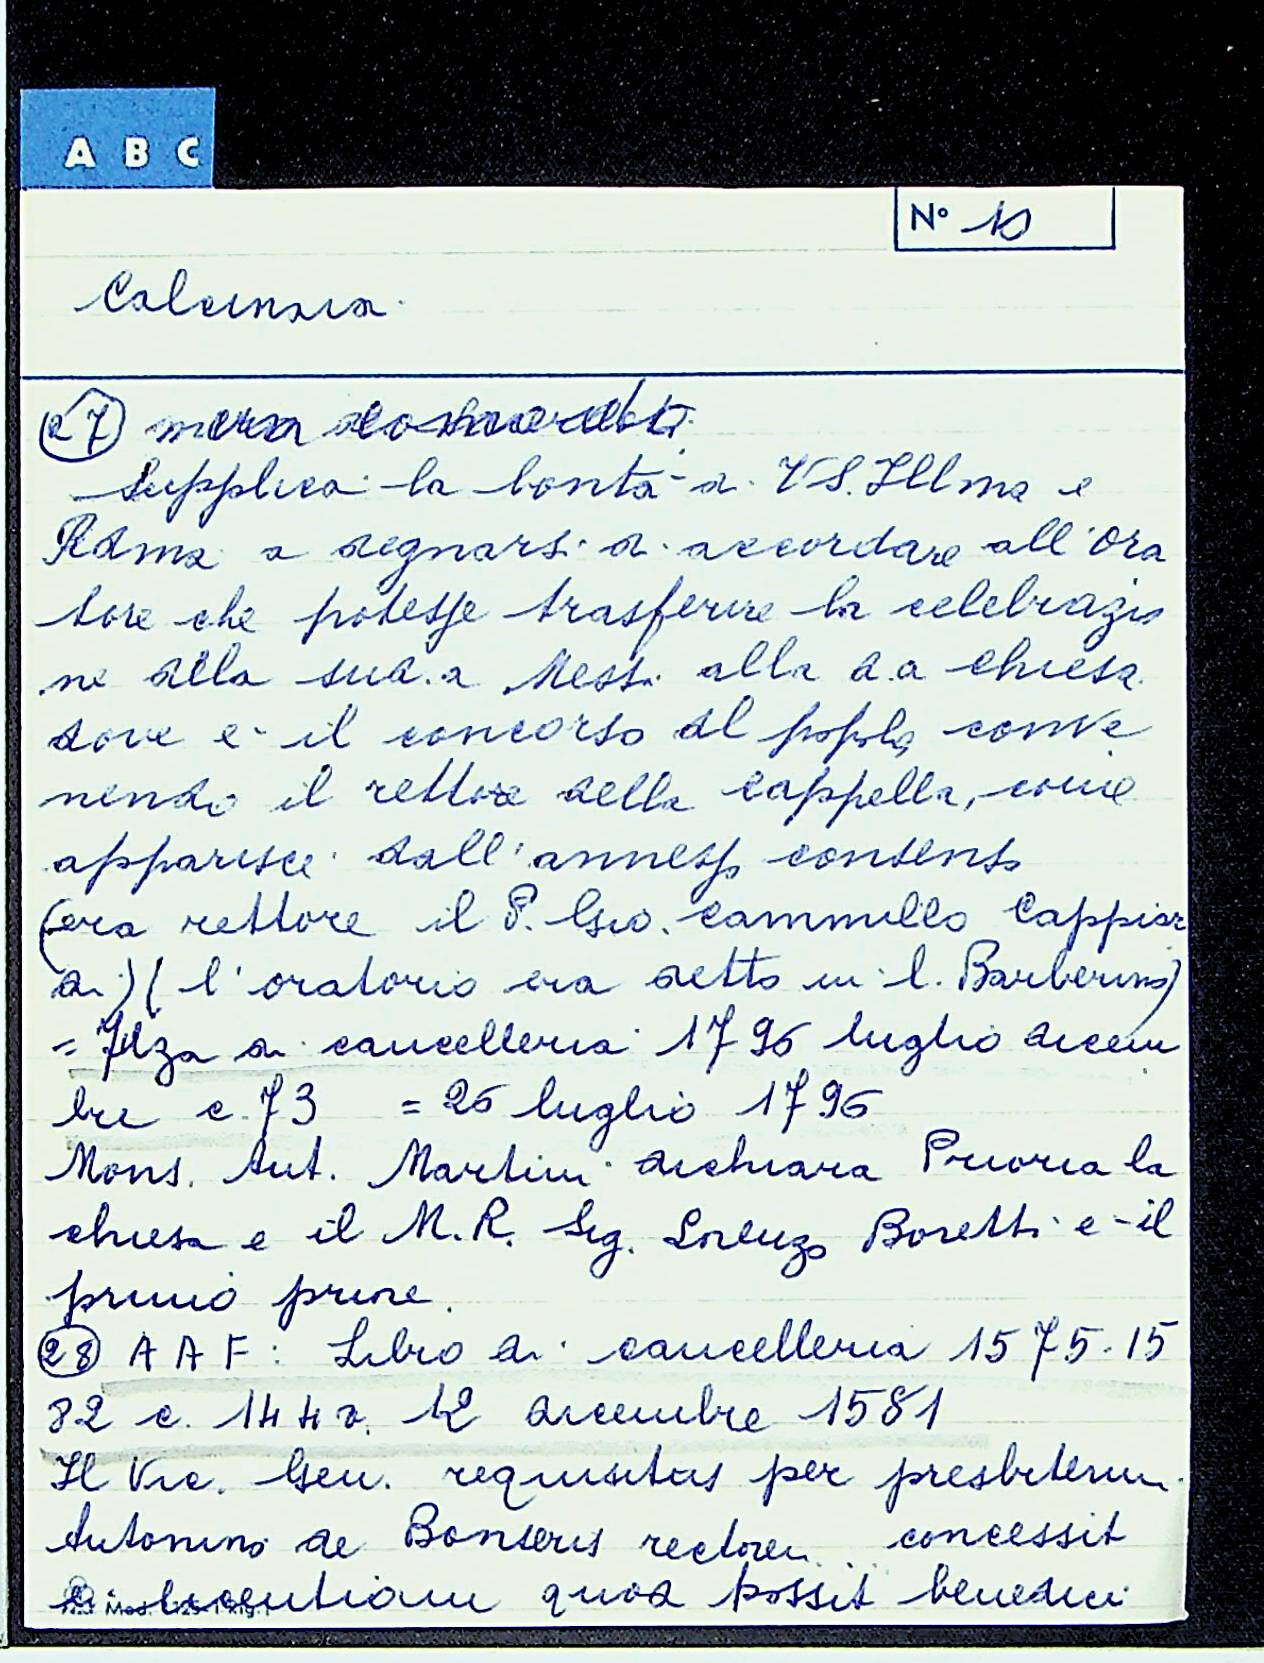 A B C
N° 10
Calcinaia
27
Supplica la bontà di VS. Illma e
Rdma a degnarsi di accordare all'Ora
tore che potesse trasferire la celebrazio
ne della sud.a Messa alla d.a chiesa
dove è il concorso del popolo, conve
nendo il rettore della cappella, come
apparisce dall'annesso consenso
(era rettore il P. Gio. Cammillo Cappiar
di) (l'oratorio era detto in l. Barberino)
= Filza di cancelleria 1796 luglio dicem
bre c. 73 = 26 luglio 1796
Mons. Ant. Martini dichiara Prioria la
chiesa e il M.R. Sig. Lorenzo Boretti è il
primo priore.
28 A A F: Libro di cancelleria 1575-15
82 c. 144 v. 12 dicembre 1581
Il Vic. Gen. requisitus per presbiterum
Antonino de Bonseris rectorem concessit
licentiam quod possit benedici